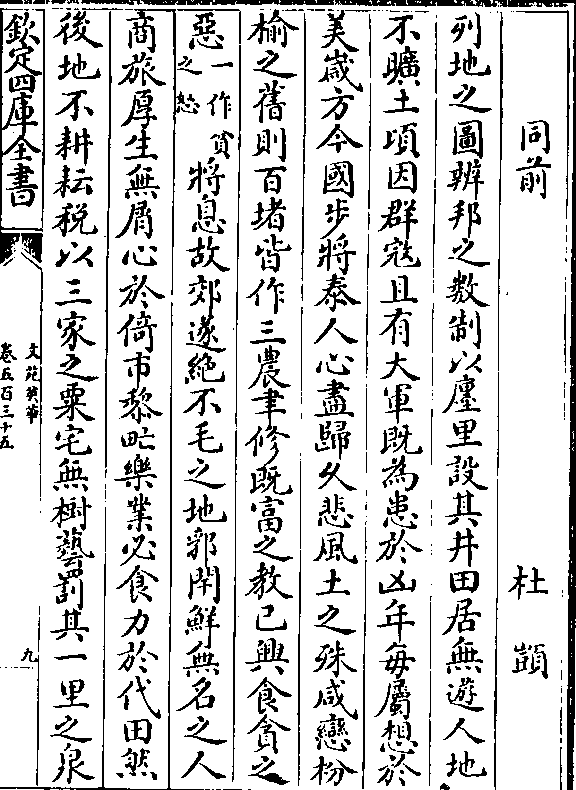 同前　杜顗
列地之圖辨邦之數制以廛里設其井田居無遊人地
不曠土頃因群冦且有大軍既為患於凶年每屬想於
美嵗方今國步將泰人心盡歸久悲風土之殊咸戀枌
榆之舊則百堵皆作三農聿修既富之教已興食貪之
惡一作貧之愁將息故郊遂絶不毛之地郭閈鮮無名之人
商旅厚生無屑心於倚市黎甿樂業必食力於代田然
後地不耕耘税以三家之粟宅無樹藝罰其一里之泉
欽定四庫全書
文苑英華
卷五百三十五
九